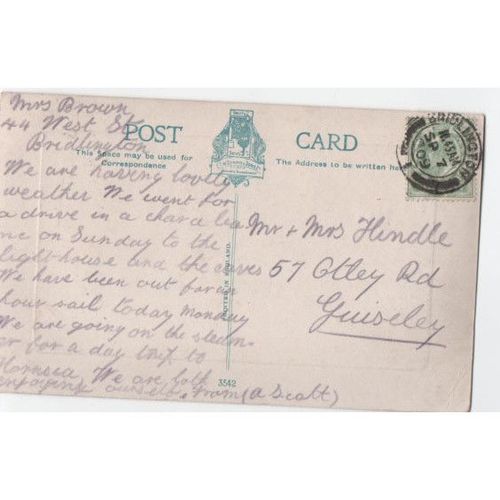 Mrs Brown
44 West St
Bridlington
POST CARD
This Space may be used for Correspondence
The Address to be written here
We are having lovely
weather We went for
a drive in a chara
on Sunday to the
lighthouse and the caves
We have been out for an
hour sail today Monday
We are going on the steam
er for a day trip to
Hornsea We are both
enjoying ourselves from (A Scott)
Mr + Mrs Hindle
57 Otley Rd
Guiseley
PRINTED IN ENGLAND.
3542
BRIDLINGTON
SP 7